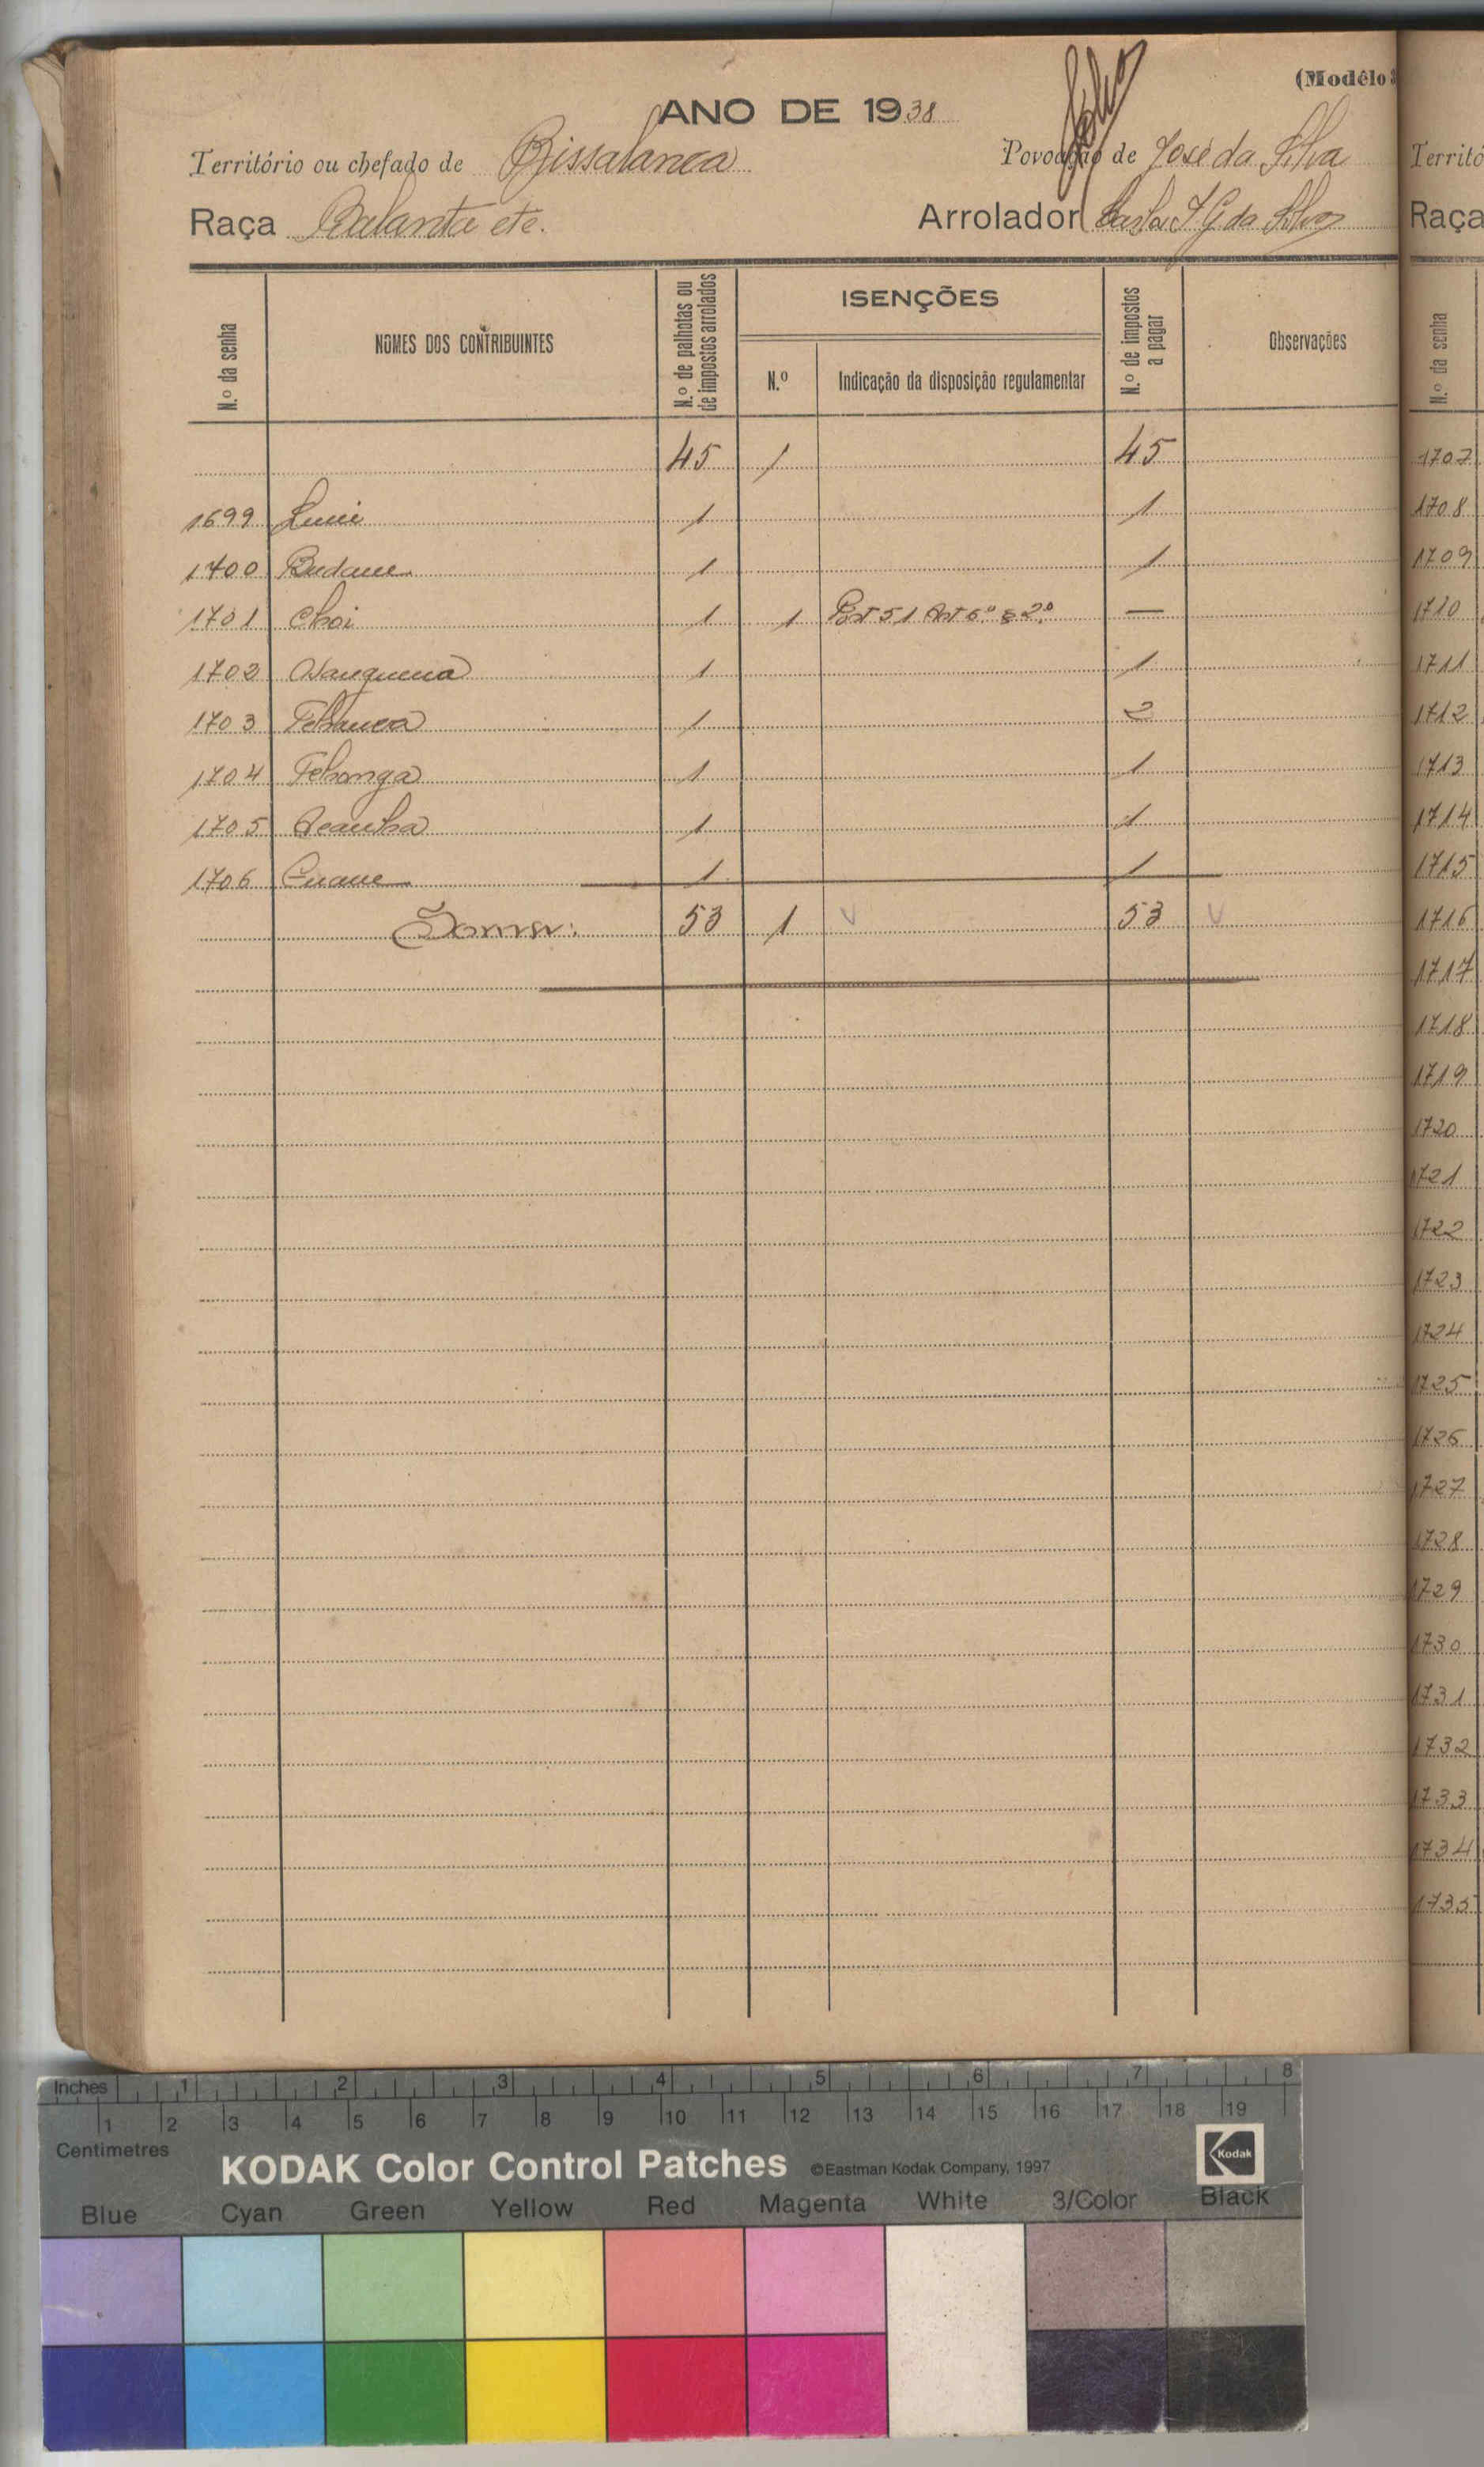 (Modêlo
ANO DE 1938
Território ou chefado de Bissalanca
Povoação de José da Silva
Raça Balanta etc.
Arrolador Carlos da Silva
N.º da senha
NOMES DOS CONTRIBUINTES
N.º de palhotas ou de impostos arrolados
ISENÇÕES
N.º
Indicação da disposição regulamentar
N.º de impostos a pagar
Observações
45 1 45
1699 1 1
1700 Budane 1 1
1701 Choi 1 1 Port 51 Art 6º § 2º —
1702 1 1
1703 1 2
1704 Tchonga 1 1
1705 1 1
1706 1 1
Soma: 53 1 53
Territó
Raça
N.º da senha
1707
1708
1709
1710
1711
1712
1713
1714
1715
1716
1717
1718
1719
1720
1721
1722
1723
1724
1725
1726
1727
1728
1729
1730
1731
1732
1733
1734
1735
Inches 1 2 3 4 5 6 7 8
1 2 3 4 5 6 7 8 9 10 11 12 13 14 15 16 17 18 19
Centimetres
KODAK Color Control Patches ©Eastman Kodak Company, 1997 Kodak
Blue Cyan Green Yellow Red Magenta White 3/Color Black